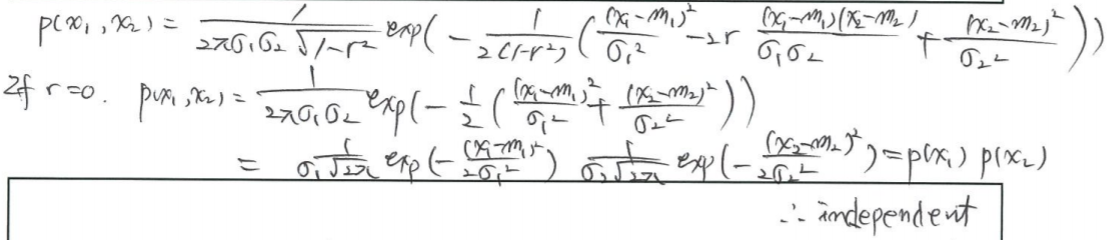 p(x₁, x₂) = 1/(2πσ₁σ₂√(1-r²)) exp(- 1/(2(1-r²)) ((x₁-m₁)²/σ₁² - 2r (x₁-m₁)(x₂-m₂)/(σ₁σ₂) + (x₂-m₂)²/σ₂²))
If r=0. p(x₁, x₂) = 1/(2πσ₁σ₂) exp(- 1/2 ((x₁-m₁)²/σ₁² + (x₂-m₂)²/σ₂²))
= 1/(σ₁√2π) exp(- (x₁-m₁)²/(2σ₁²)) 1/(σ₂√2π) exp(- (x₂-m₂)²/(2σ₂²)) = p(x₁) p(x₂)
∴ independent